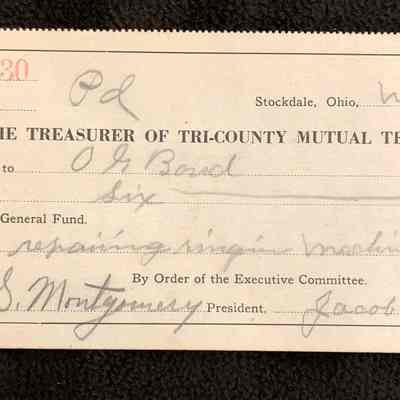 30
Pd
Stockdale, Ohio,
HE TREASURER OF TRI-COUNTY MUTUAL TE
to O G Bond
Six
General Fund.
repairing ringin machi
By Order of the Executive Committee.
S. Montgomery President. Jacob